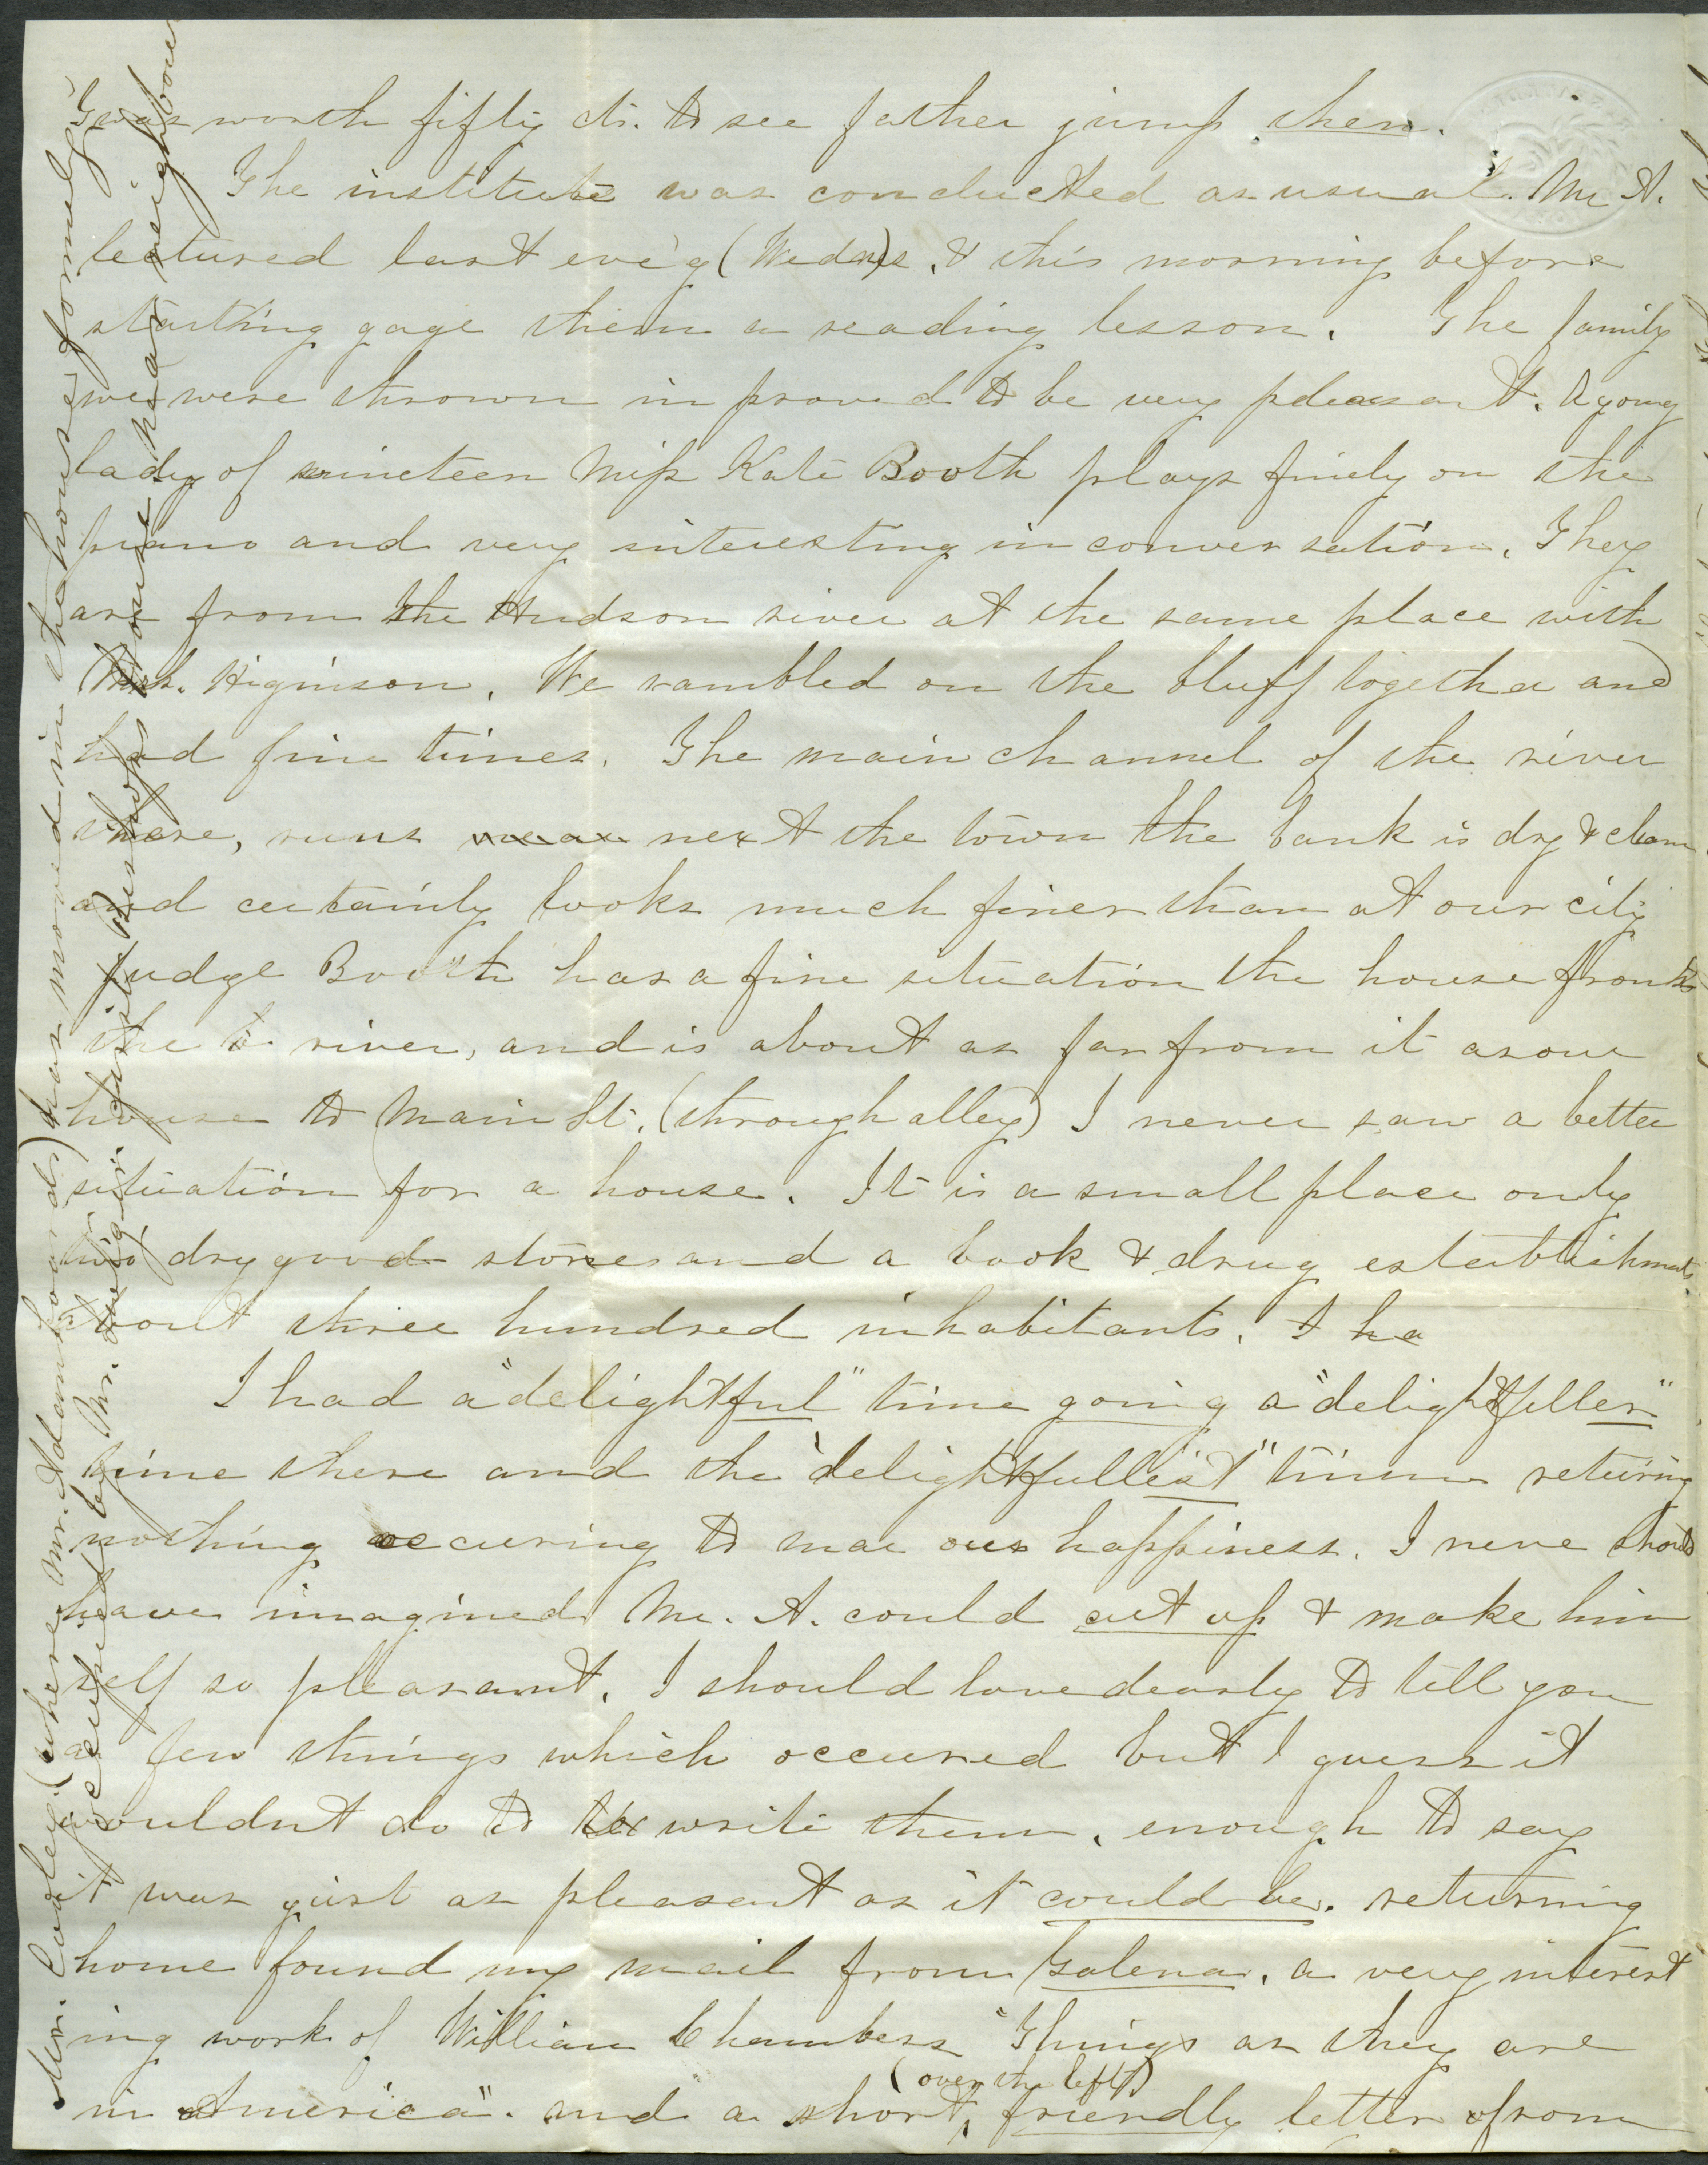 'Twas worth fifty cts. to see father jump then.
The institute was conducted as usual. Mr A.
lectured last eve'g (Wednes). & this morning before
starting gage them a reading lesson. The family
we were thrown in proved to be very pleasant. A young
lady of nineteen Miss Kate Booth plays finely on the
piano and very interesting in conversation. They
are from the Hudson river at the same place with
Mrs. Higinson. We rambled on the bluff together and
had fine times. The main channel of the river
there, runs near next the town the bank is dry & clean
and certainly looks much finer than at our city
judge Booth has a fine situation the house fronts
the river, and is about as far from it as our
house to Main St. (through alley) I never saw a better
situation for a house. It is a small place only
two dry good stores and a book & drug establishments
about three hundred inhabitants. I ha
I had a "delightful" time going a "delightfuller"
time there and the "delightfullest" time returing
nothing occuring to mar our happiness. I neve should
have imagined Mr. A. could cut up & make him
self so pleasant. I should love dearly to tell you
a few things which occured but I guess it
wouldnt do to write them, enough to say
it was just as pleasant as it could be. returning
home found my mail from Galena. a very interest
ing work of William Chambers "Things as they are
in America". and a short, (over the left) friendly letter from
Mr. Cooley (where Mr. Adams boards) has moved in the house formerly
occupied by Mr. house near neighbour